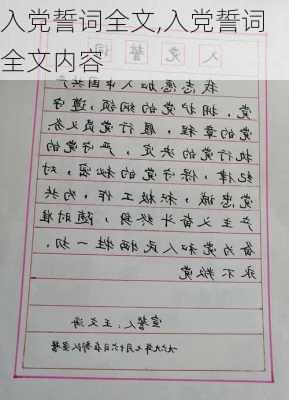 入党誓词全文,入党誓词
全文内容
入党誓词
我志愿加入中国共产
党,拥护党的纲领,遵守
党的章程,履行党员义务,
执行党的决定,严守党的
纪律,保守党的秘密,对
党忠诚,积极工作,为共
产主义奋斗终身,随时准
备为党和人民牺牲一切,
永不叛党
宣誓人:王文海